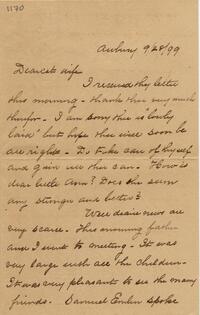 1170
Asbury 9/28/99
Dearest wife
I received thy letter
this morning - thank thee very much
therefor. I am sorry thee is "lowly
laid" but hope thee will soon be
all right. Do take care of thyself
and gain all thee can. How is
dear little Ann? Does she seem
any stronger and better?
Well dear news are
very scarce. This morning father
and I went to meeting. It was
very large with all the children.
It was very pleasant to see the many
friends. Samuel Emlen spoke